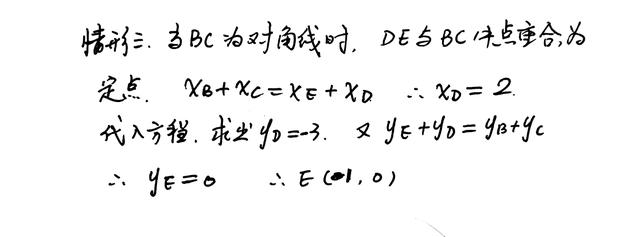 情形三.当BC为对角线时, DE与BC中点重合,为
定点. xB+xC=xE+xD ∴ xD=2.
代入方程.求出yD=-3. 又 yE+yD=yB+yC
∴ yE=0 ∴ E(1,0)